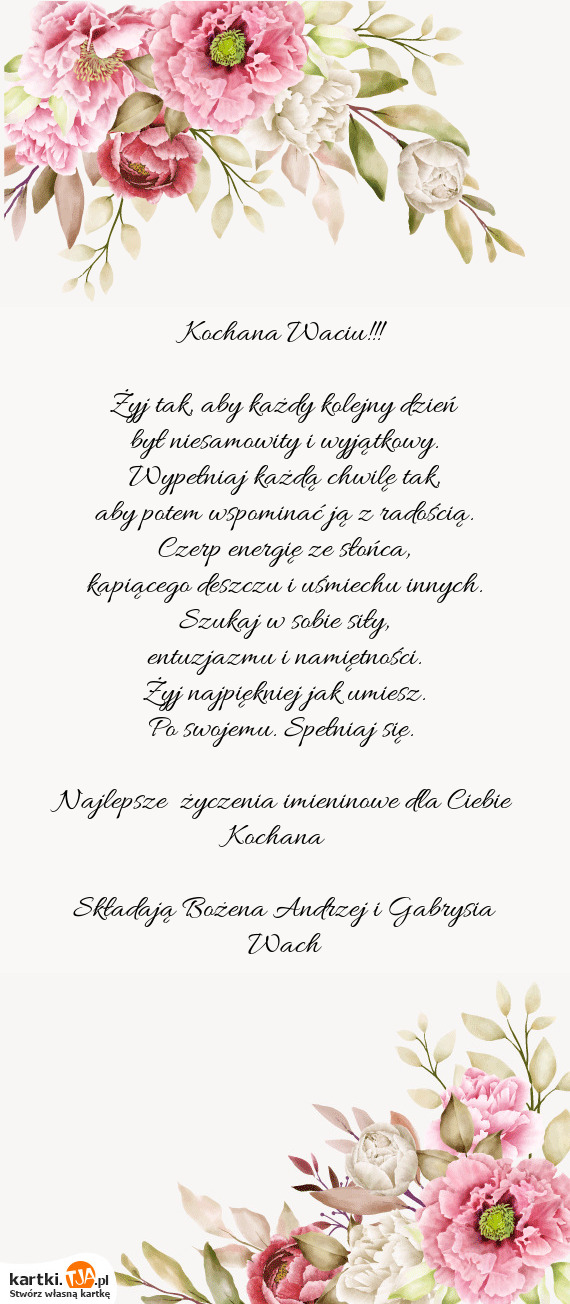 Kochana Waciu!!!
Żyj tak, aby każdy kolejny dzień
był niesamowity i wyjątkowy.
Wypełniaj każdą chwilę tak,
aby potem wspominać ją z radością.
Czerp energię ze słońca,
kapiącego deszczu i uśmiechu innych.
Szukaj w sobie siły,
entuzjazmu i namiętności.
Żyj najpiękniej jak umiesz.
Po swojemu. Spełniaj się.
Najlepsze  życzenia imieninowe dla Ciebie
Kochana
Składają Bożena Andrzej i Gabrysia
Wach
kartki.TJA.pl
Stwórz własną kartkę